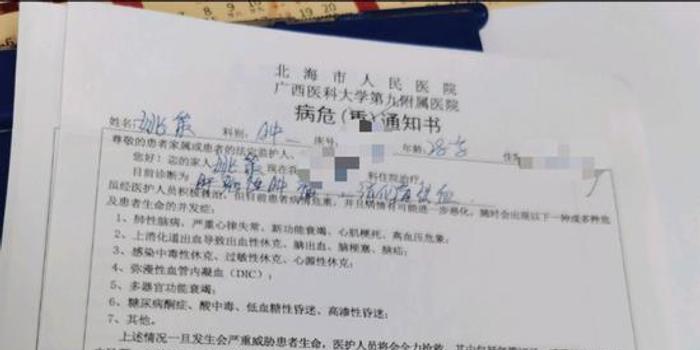 19 20
北海市人民医院
广西医科大学第九附属医院
病危(重)通知书
姓名: 姚 科别: 肿 床号: 年龄:
尊敬的患者家属或患者的法定监护人、
您好!您的家人姚 现在我 科住院治疗,
目前诊断为 肿 消化道出血
虽经医护人员积极救治,但目前患者病情危重,并且病情有可能进一步恶化,随时会出现以下一种或多种危
及患者生命的并发症:
1、肺性脑病,严重心律失常、心功能衰竭、心肌梗死、高血压危象;
2、上消化道出血导致出血性休克、脑出血、脑梗塞、脑疝;
3、感染中毒性休克、过敏性休克、心源性休克;
4、弥漫性血管内凝血(DIC);
5、多器官功能衰竭;
6、糖尿病酮症、酸中毒、低血糖性昏迷、高渗性昏迷;
7、其他。
上述情况一旦发生会严重威胁患者生命,医护人员将会全力抢救,其中包括